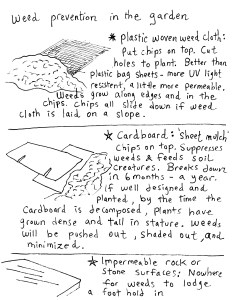 Weed prevention in the garden
* plastic woven weed cloth:
Put chips on top. Cut
holes to plant. Better than
plastic bag sheets - more UV light
resistent, a little more permeable.
Weeds grow along edges and in the
chips. Chips all slide down if weed
cloth is laid on a slope.
* Cardboard: 'sheet mulch'
Chips on top. Suppresses
weeds & feeds soil
creatures. Breaks down
in 6 months - a year.
If well designed and
planted, by the time the
Cardboard is decomposed, plants have
grown dense and tall in stature. Weeds
will be pushed out, shaded out, and
minimized.
* Impermeable rock or
stone surfaces: Nowhere
for weeds to lodge
a foot hold in